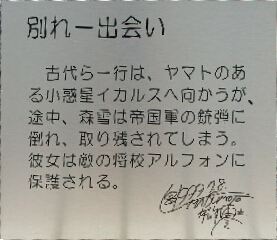 別れー出会い
古代ら一行は、ヤマトのあ
る小惑星イカルスへ向かうが、
途中、森雪は帝国軍の銃弾に
倒れ、取り残されてしまう。
彼女は敵の将校アルフォンに
保護される。